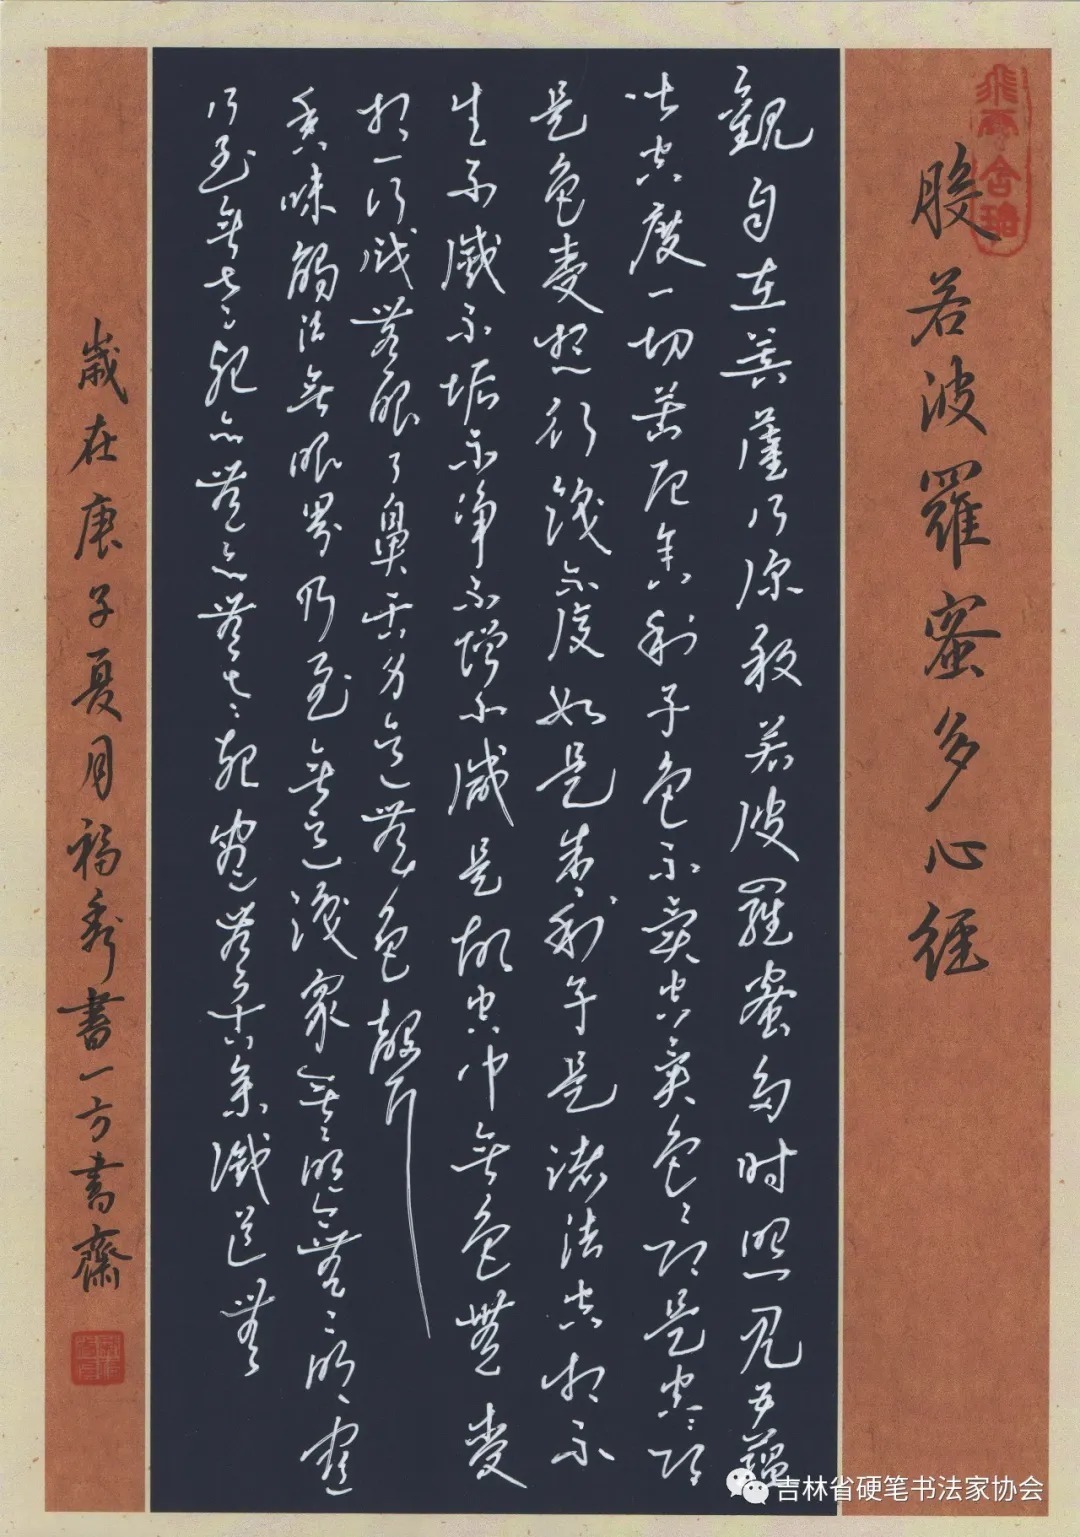 般若波羅蜜多心経
觀自在菩薩行深般若波羅蜜多時照見五蘊
皆空度一切苦厄舍利子色不異空異色々即是空々即
是色受想行識亦復如是舍利子是諸法空相不
生不滅不垢不净不增不減是故空中無色無受
想行識無眼耳鼻舌身意無色聲
香味觸法無眼界乃至無意識界無々明亦無々明盡
乃至無老死亦無亦無老死盡無苦集滅道無
歲在庚子夏月福秀書一方書齋
吉林省硬笔书法家协会